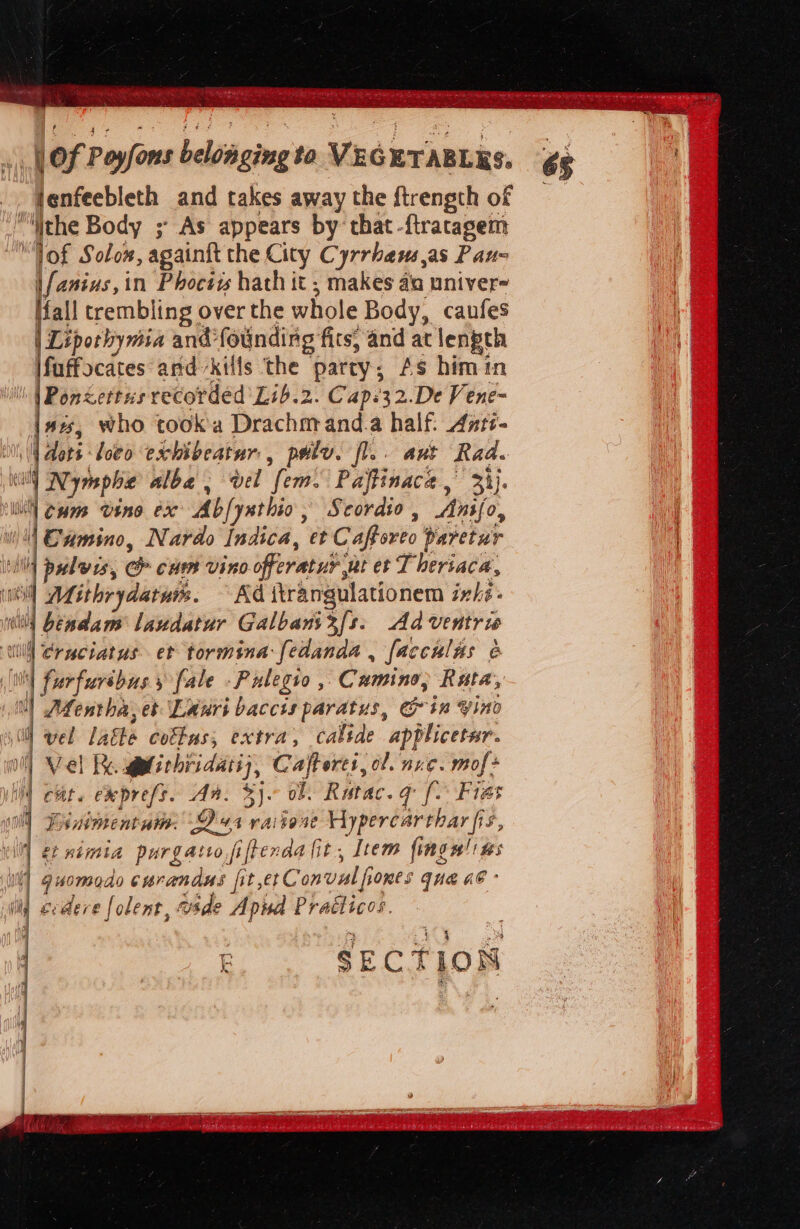 Of Poyſons belonging to VEGETABLES. 65
enfeebleth and takes away the ſtrength of
the Body ; As appears by that ſtratagem
of Solon, againſt the City Cyrrhæus, as Pau-
ſanius, in Phociis hath it ; makes an univer-
ſall trembling over the whole Body, cauſes
Lipothymia and founding fits, and at length
ſuffocates and kills the party; As him in
Ponzettus recorded Lib.2. Cap.32. De Vene-
nis, who took a Drachm and a half. Anti-
doti loco exhibeatur, pulv. fl. aut Rad.
Nymphe albe, vel ſem. Paſtinacæ, ʒij.
cum vino ex Abſynthio, Scordio, Aniſo,
Cumino, Nardo Indica, et Caſtoreo paretur
pulvis, & cum vino offeratur, ut et Theriaca,
Mithrydatum. Ad ſtrangulationem inhi-
bendam laudatur Galbani ʒſs. Ad ventris
cruciatus et tormina ſedanda, ſacculus è
furfuribus, ſale Pulegio, Cumino, Ruta,
Mentha, et Lauri baccis paratus, & in vino
vel lacte coctus, extra, calide applicetur.
Vel ℞. Mithridatij, Caſtorei, ol. nuc. moſ-
cat. expreſs. An. ʒj. ol. Rutac. q ſ. Fiat
Linimentum. Qua ratione Hypercartharſis,
et nimia purgatio ſiſtenda ſit, Item ſingultus
quomodo curandus ſit, et Convulſiones quæ ac-
cidere ſolent, vide Apud Practicos.
E SECTION